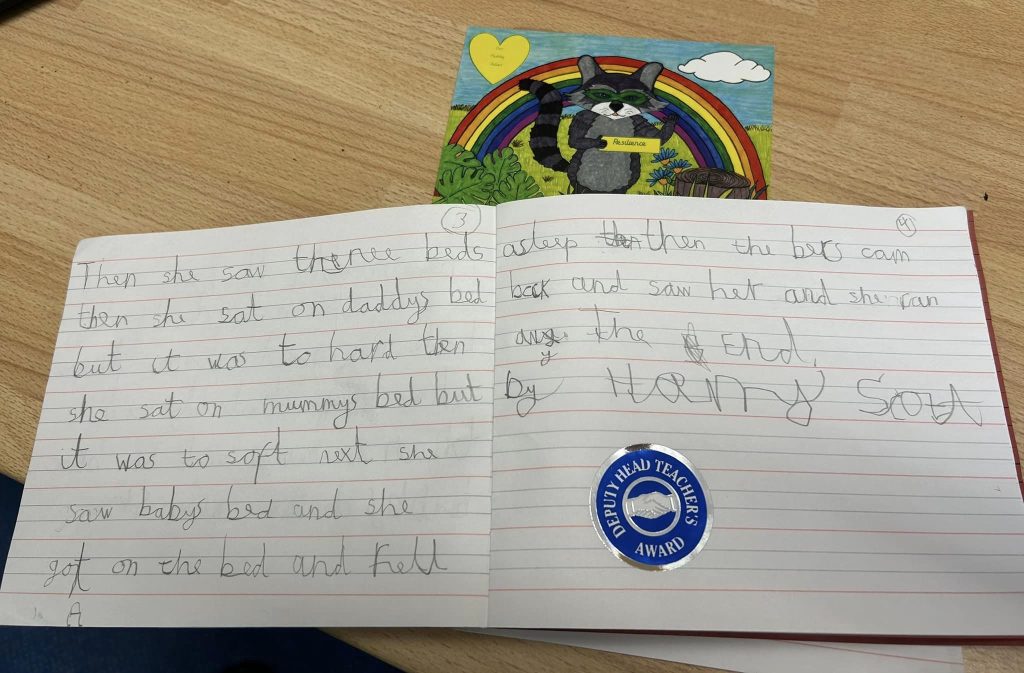 Resilience
3
Then she saw three beds
then she sat on daddys bed
but it was to hard then
she sat on mummys bed but
it was to soft next she
saw babys bed and she
got on the bed and fell
A
4
asleep then the bers cam
back and saw her and she ran
away. The End.
by Harry
DEPUTY HEAD TEACHER'S
AWARD